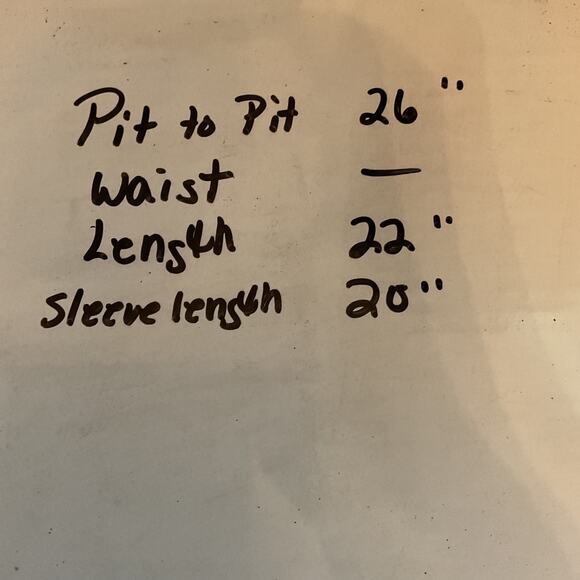 Pit to Pit 26"
Waist —
Length 22"
Sleeve length 20"